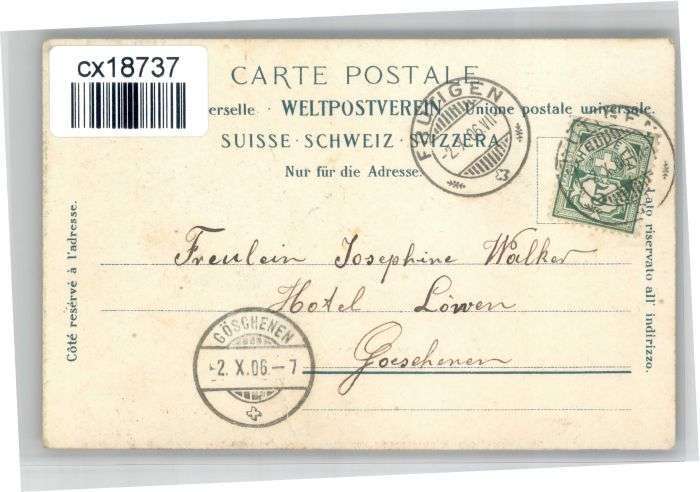 cx18737
CARTE POSTALE
erselle · WELTPOSTVEREIN · Unione postale universale.
SUISSE · SCHWEIZ · SVIZZERA
Nur für die Adresse.
FRUTIGEN
-2.X.06
5
Côté réservé à l'adresse.
Lato riservato all' indirizzo.
Freulein Josephine Walker
Hotel Löwen
Goeschenen
GÖSCHENEN
2. X. 06 — 7